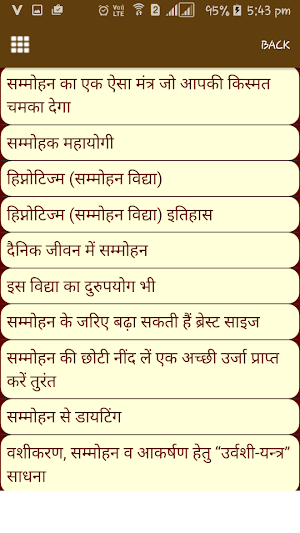 95% 5:43 pm
BACK
सम्मोहन का एक ऐसा मंत्र जो आपकी किस्मत
चमका देगा
सम्मोहक महायोगी
हिप्नोटिज्म (सम्मोहन विद्या)
हिप्नोटिज्म (सम्मोहन विद्या) इतिहास
दैनिक जीवन में सम्मोहन
इस विद्या का दुरुपयोग भी
सम्मोहन के जरिए बढ़ा सकती हैं ब्रेस्ट साइज
सम्मोहन की छोटी नींद लें एक अच्छी उर्जा प्राप्त
करें तुरंत
सम्मोहन से डायटिंग
वशीकरण, सम्मोहन व आकर्षण हेतु “उर्वशी-यन्त्र”
साधना